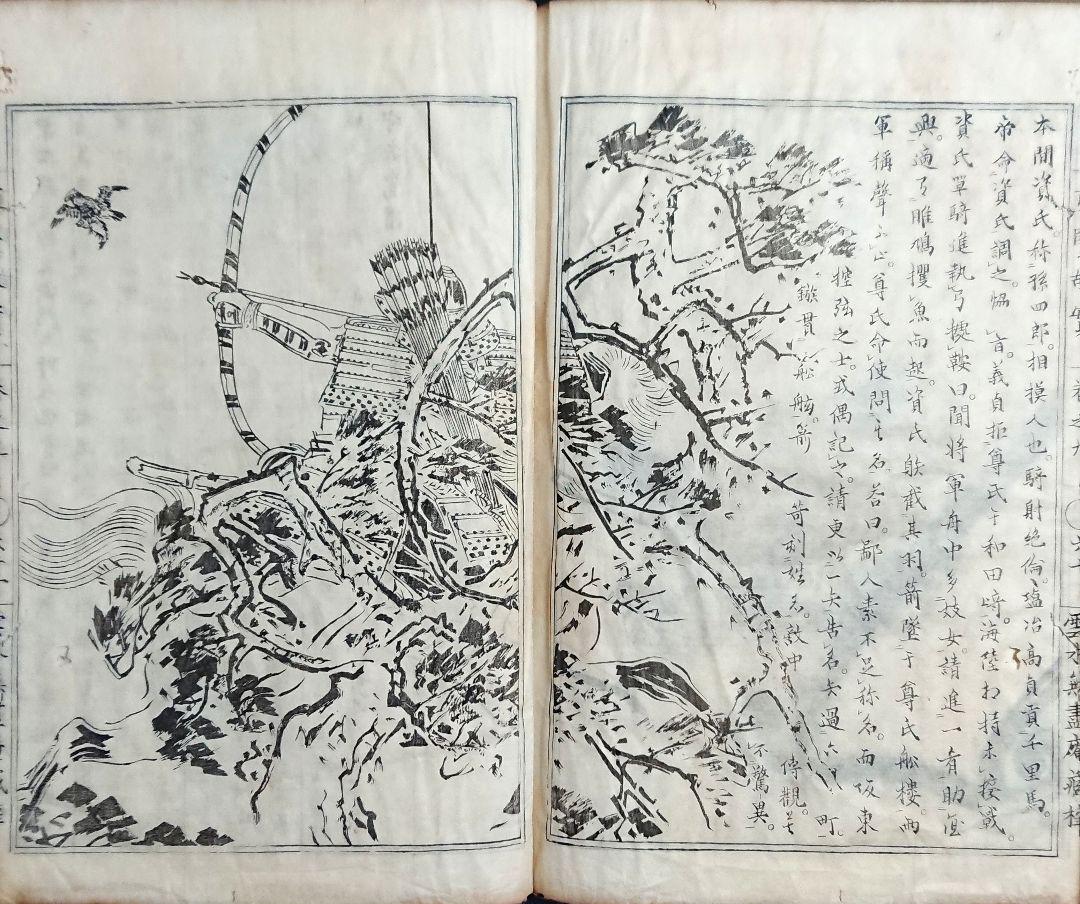 本間資氏。称孫四郎。相摸人也。騎射絶倫。塩冶高貞貢千里馬。
帝命資氏調之。愜旨。義貞拒尊氏于和田崎。海陸相持未接戦。
資氏単騎進執弓拠鞍曰。聞将軍舟中多妓女。請進一肴助宴
興。適有雎鳩攫魚而起。資氏射截其羽。箭墜于尊氏船楼。両
軍称声不止。尊氏命使問其名。答曰。鄙人素不足称名。而坂東
控弦之士。或偶記之。請更以一矢告名。矢過六町。
鏃貫船舷。箭
笴刻姓名。敵中伝観。莫
不驚異。
巻之九
六十
雲水無尽庵蔵梓